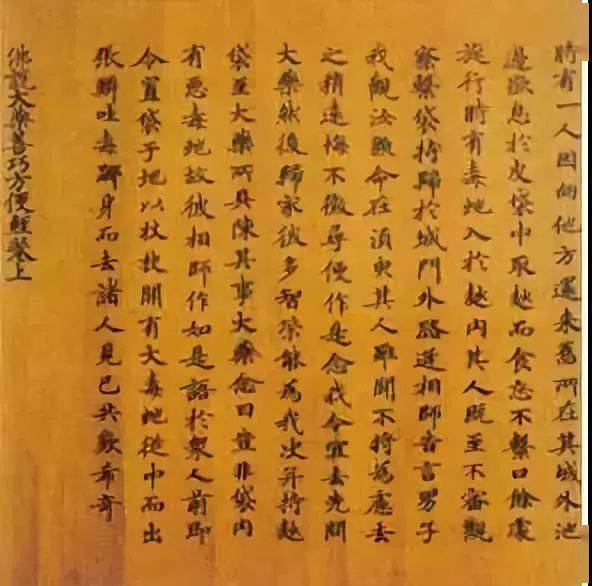 時有一人因向他方還来舊所在其城外池
邊歇息於皮袋中取麨而食忘不繫口餘處
旋行時有毒虵入於麨内其人既至不審觀
察繫袋持歸於城門外路逢相師告言男子
我觀汝顔命在須臾其人雖聞不將為慮去
之稍遠悔不徵尋便作是念我今宜去先問
大藥然後歸家彼多智策能為我决并持麨
袋至大藥所具陳其事大藥念曰豈非袋内
有惡毒虵故彼相師作如是語於衆人前即
令置袋于地以杖抉開有大毒虵從中而出
張吐毒身而去諸人見已共歎希奇
佛說大藥善巧方便經卷上